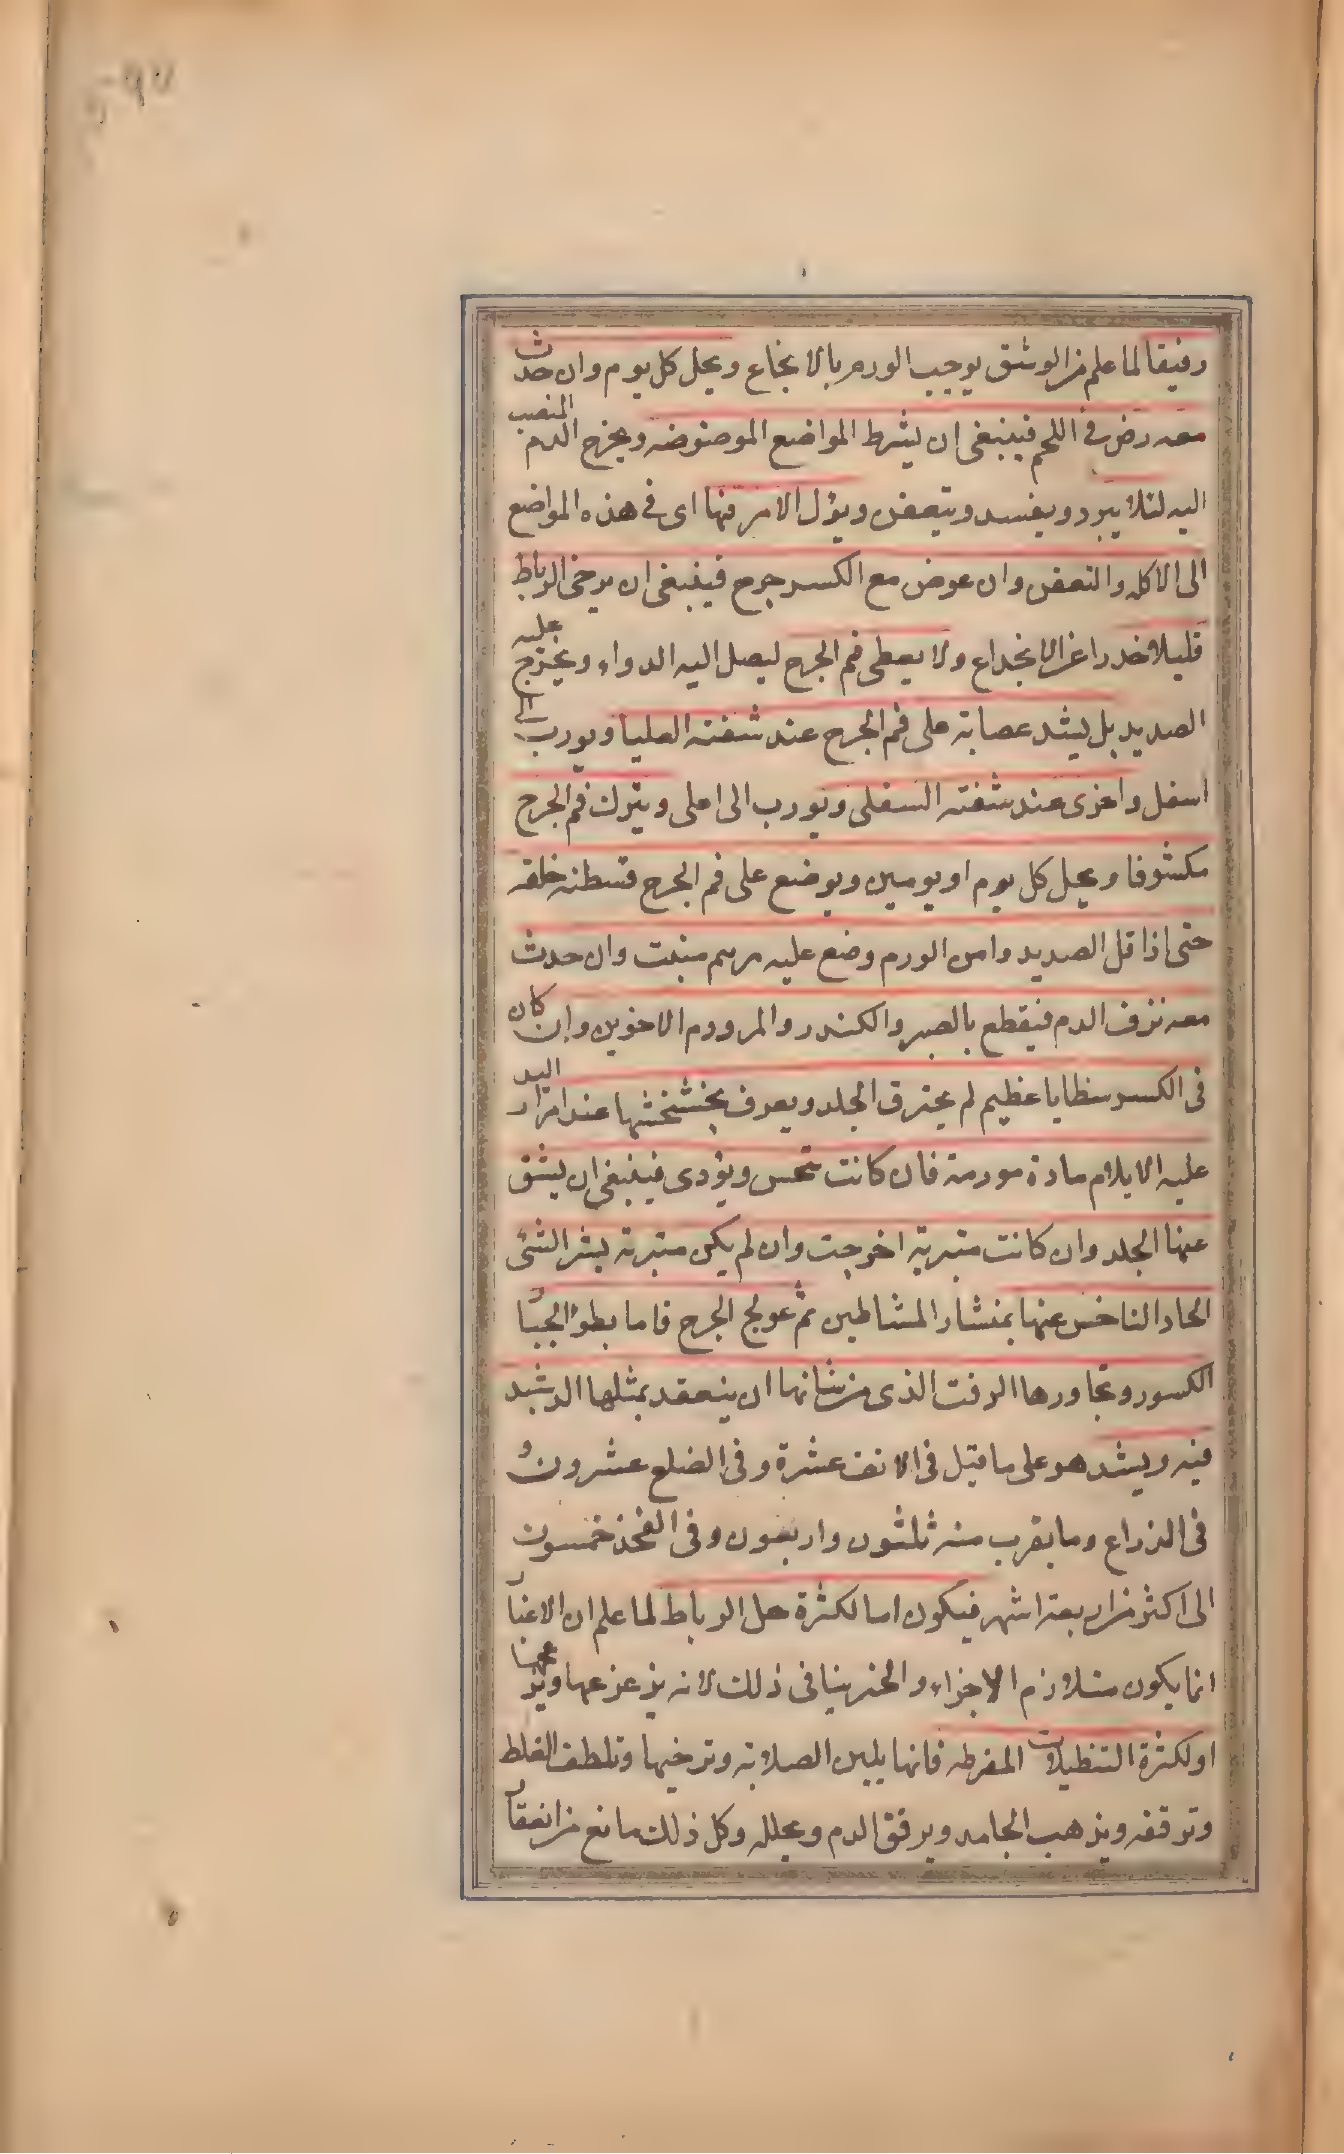 رفيقا لما علم من الوشق يوجب الورم بالايجاع ويحل كل يوم وان حدث
معه رض فى اللحم فينبغى ان يشرط المواضع الموضوضه ويخرج الدم المنصب
اليه لئلا يبرد ويفسد ويتعفن ويؤل الامر فيها اى فى هذه المواضع
الى الاكله والتعفن وان عرض مع الكسر جرح فينبغى ان يرخى الرباط
قليلا حذرا عن الانجذاع ولا يعطى فم الجرح ليصل اليه الدواء ويخرج عليه
الصديد بل يشد عصابة على فم الجرح عند شفته العليا ويورب الى
اسفل واخرى عند شفته السفلى ويورب الى اعلى ويترك فم الجرح
مكشوفا ويحل كل يوم او يومين ويوضع على فم الجرح قسطنه خلقه
حتى اذا قل الصديد وامن الورم وضع عليه مرهم منبت وان حدث
معه نزف الدم فيقطع بالصبر والكندر والمر ودم الاخوين وان كان
فى الكسر شظايا عظيم لم يخترق الجلد ويعرف بخشخشها عند امرار اليد
عليه الايلام مادة مورمة فان كانت تحس ويؤدى فينبغى ان يشق
عنها الجلد وان كانت متبرية اخرجت وان لم يكن متبرئه ينشر الشئ
الحاد الناخس عنها بمنشار المشاطين ثم عولج الجرح فاما بطؤ انجبار
الكسور وتجاورها الوقت الذى من شانها ان ينعقد بمثلها الدشبد
فيه ويشد هو على ما قيل فى الانف عشرة وفى الضلع عشرون و
فى الذراع وما يقرب منه ثلثون واربعون وفى الفخذ خمسون
الى اكثر من اربعة اشهر فيكون اما لكثرة حل الرباط لما علم ان الاغيار
انما يكون متلازم الاجزاء والخبر ينافى ذلك لانه يزعزعها
او لكثرة التنطيلات المفرطه فانها يلين الصلابة وترخيها وتلطف الغلظ
وترققه ويذهب الجامد ويرقق الدم ويحلله وكل ذلك مانع من انعقاد